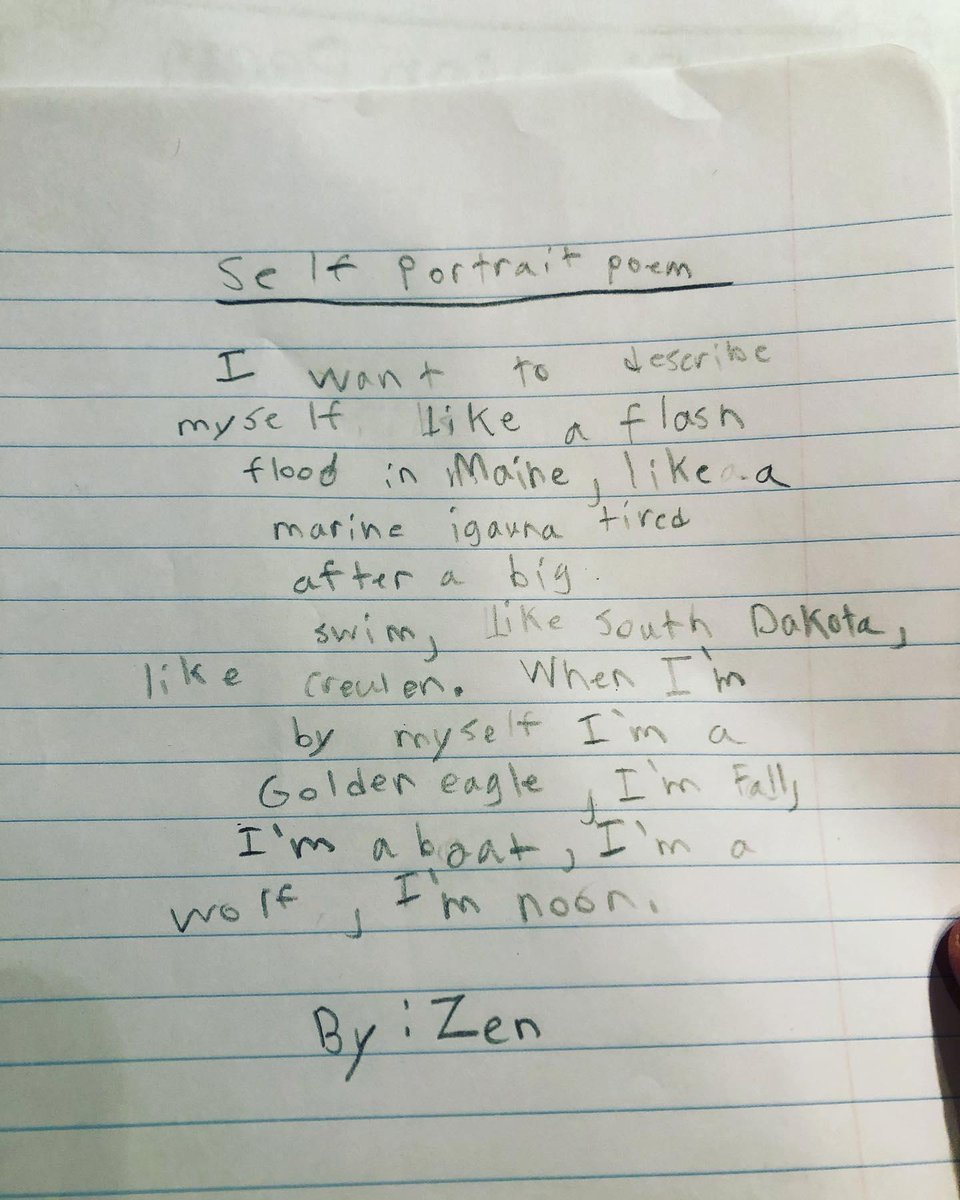 Self portrait poem
I want to describe
myself like a flash
flood in Maine, like a
marine igauna tired
after a big
swim, like South Dakota,
like creulen. When I'm
by myself I'm a
Golden eagle, I'm Fall,
I'm a boat, I'm a
wolf, I'm noon.
By: Zen